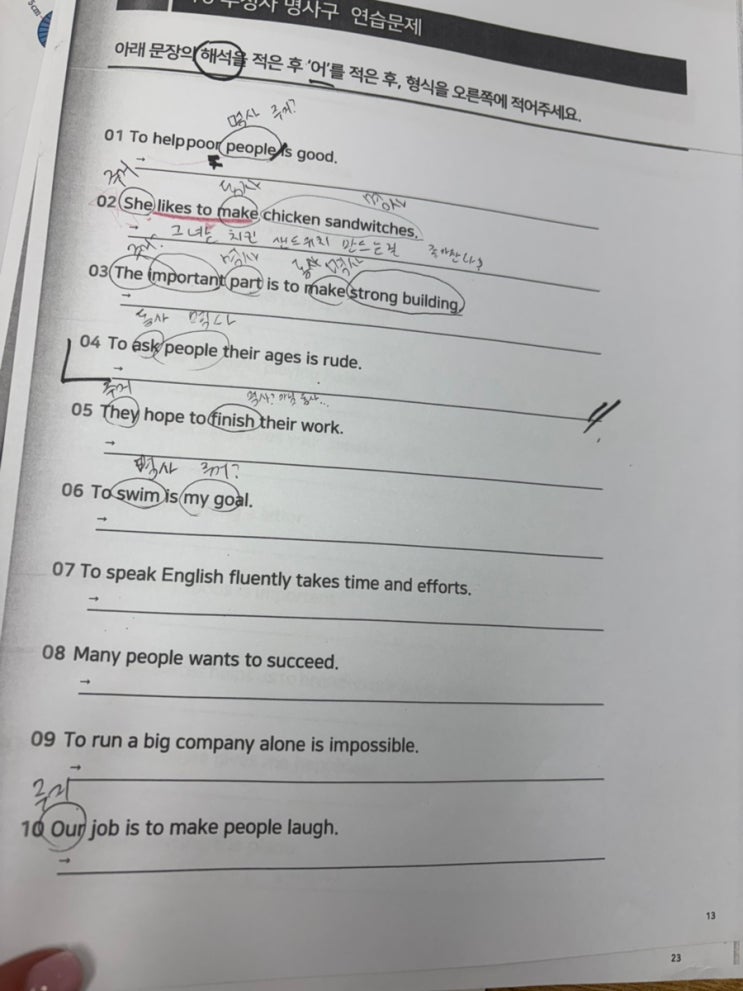 부정사 명사구 연습문제
아래 문장의 해석을 적은 후 '어'를 적은 후, 형식을 오른쪽에 적어주세요.
명사 주어?
01 To help poor people is good.
→
주어 동사 명사
02 She likes to make chicken sandwitches.
→ 그녀는 치킨 샌드위치 만드는걸 좋아한다?
주어. 명사 동사 명사
03 The important part is to make strong building.
→
동사 명사
04 To ask people their ages is rude.
→
주어 명사? 아님 동사...
05 They hope to finish their work.
→
명사 주어?
06 To swim is my goal.
→
07 To speak English fluently takes time and efforts.
→
08 Many people wants to succeed.
→
09 To run a big company alone is impossible.
→
주어
10 Our job is to make people laugh.
→
13
23